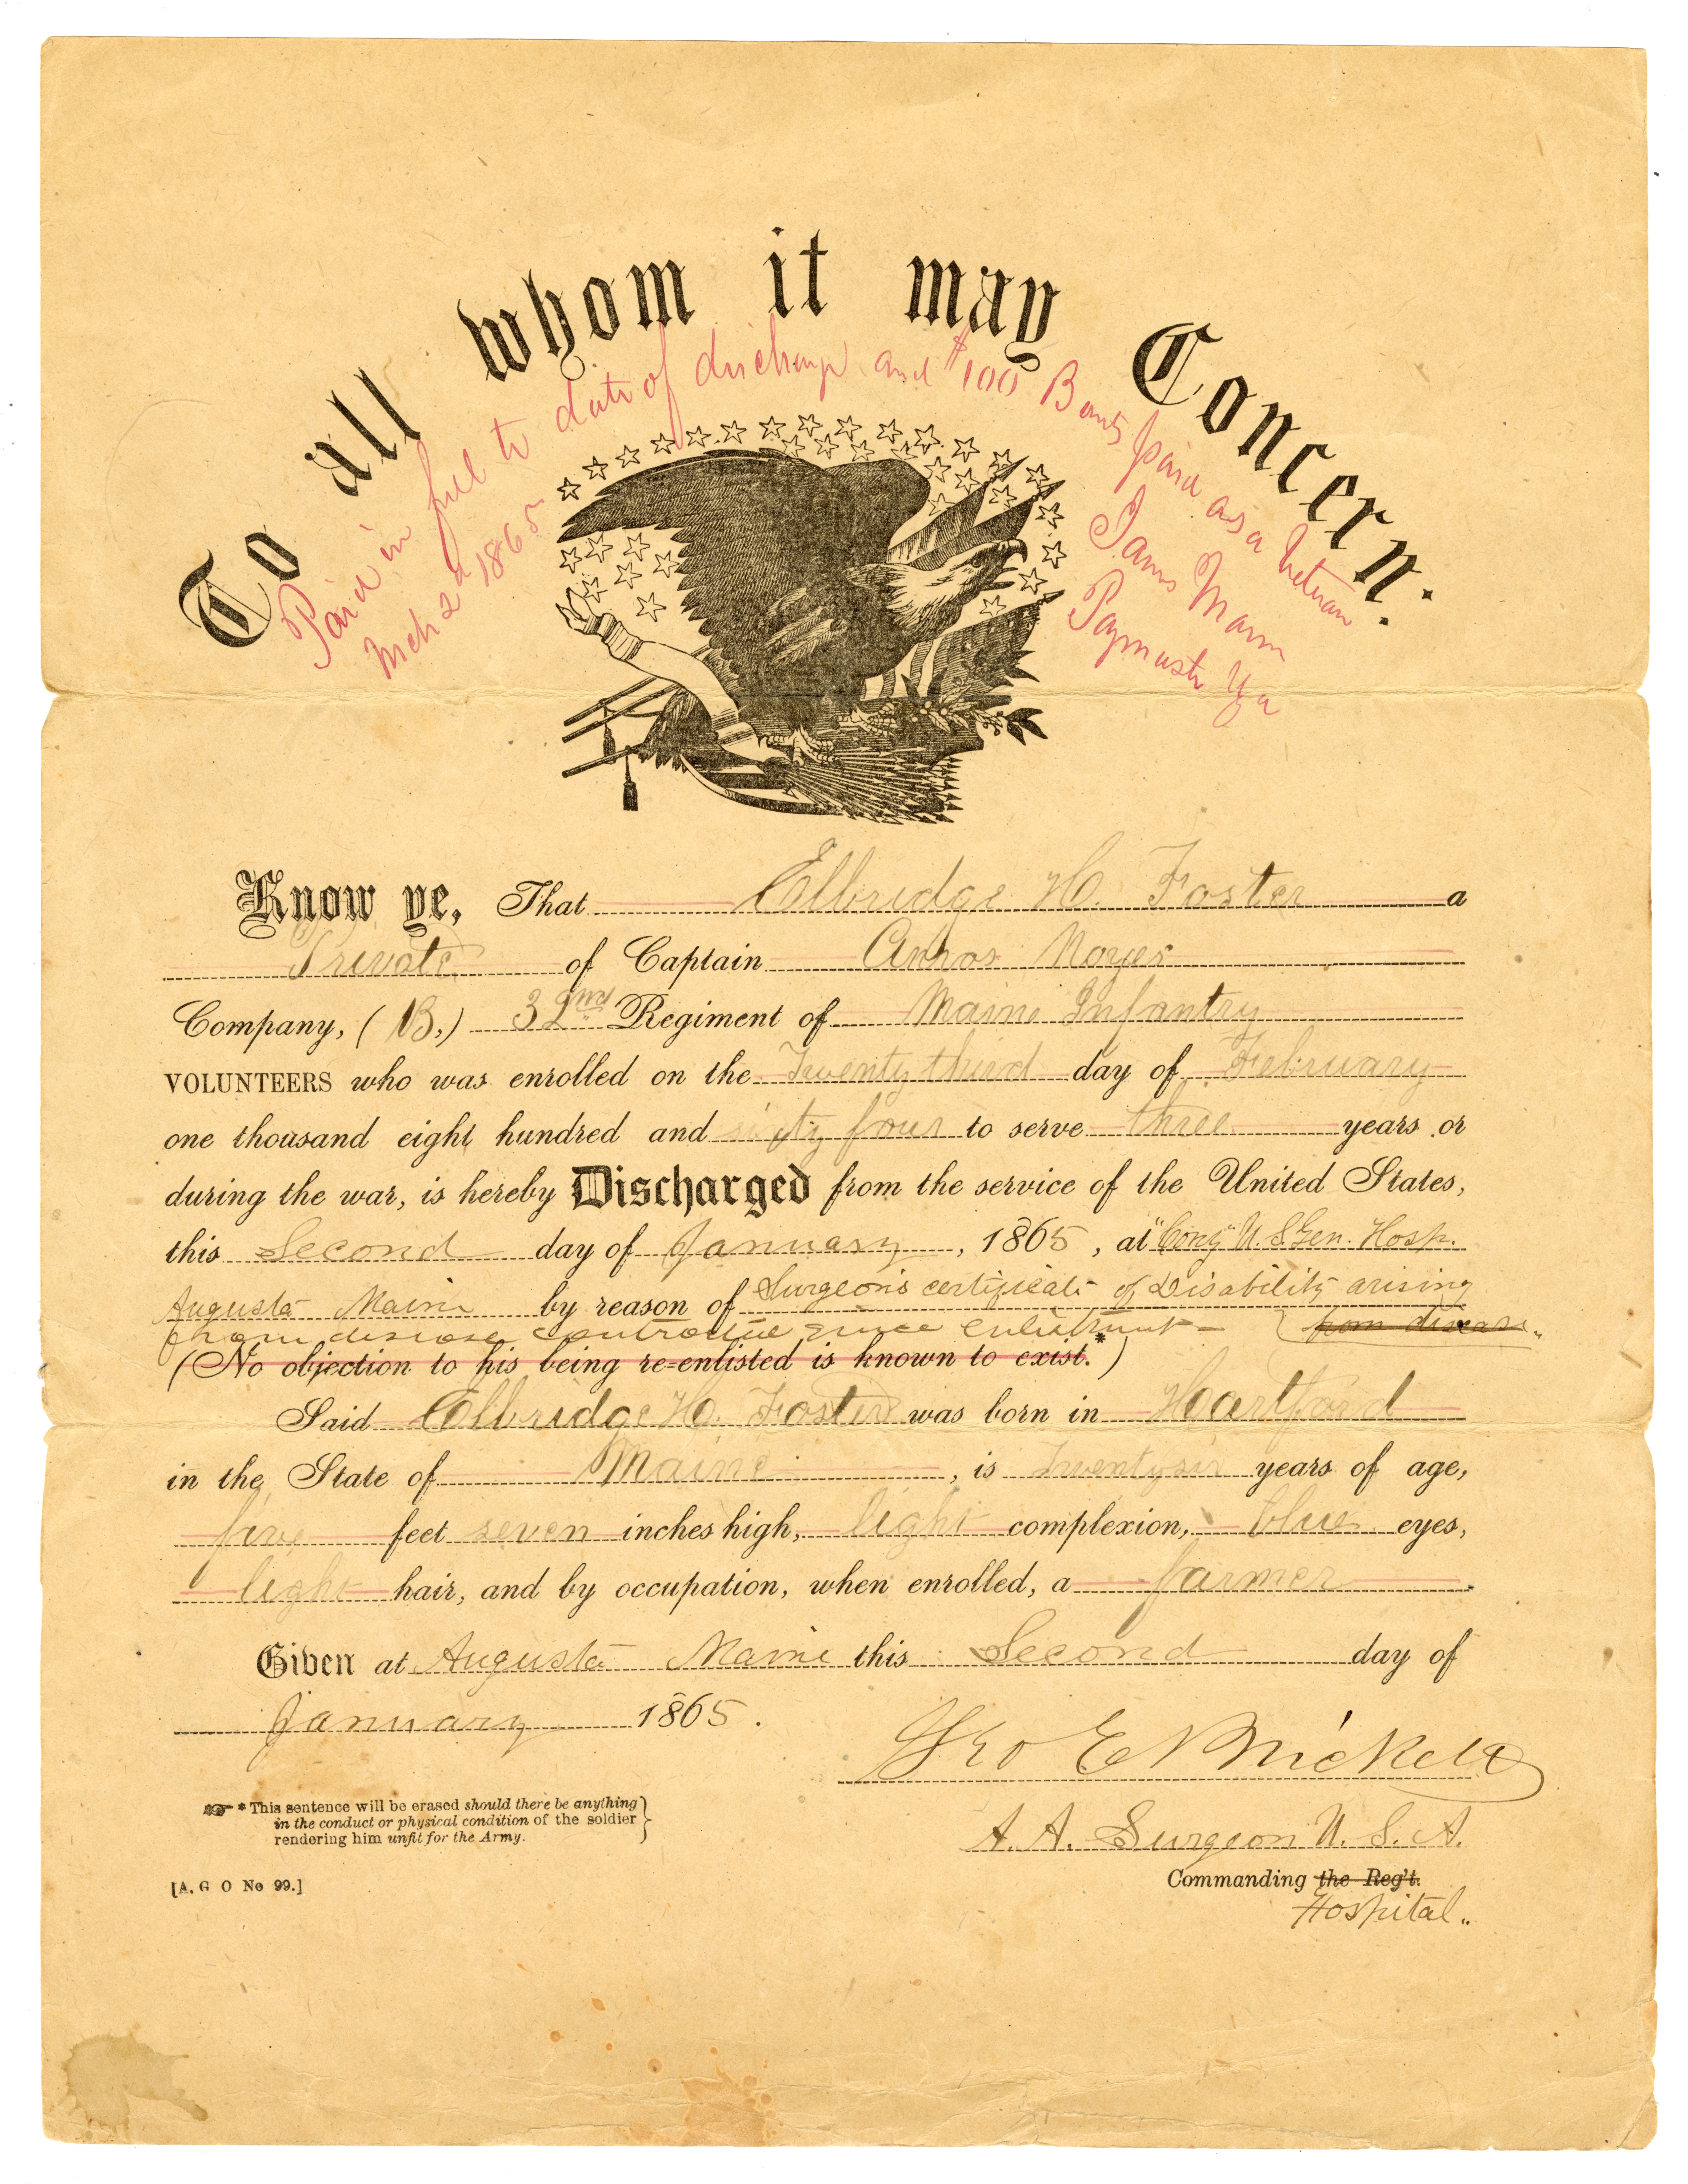 To all whom it may Concern.
Paid in full to date of discharge and $100 Bounty paid as a Veteran
Mch 2d 1865
James Mann
Paymaster
Know ye, That Elbridge H. Foster a
Private of Captain Amos Noyes
Company, (B,) 32nd Regiment of Maine Infantry
VOLUNTEERS who was enrolled on the Twenty third day of February
one thousand eight hundred and sixty four to serve three years or
during the war, is hereby Discharged from the service of the United States,
this Second day of January, 1865, at "Cony" U.S Gen. Hosp.
Augusta Maine by reason of Surgeon's certificate of Disability arising
from disease contracted since enlistment – from disease.
(No objection to his being re-enlisted is known to exist.*)
Said Elbridge H. Foster was born in Hartford
in the State of Maine, is Twentysix years of age,
five feet seven inches high, light complexion, blue eyes,
light hair, and by occupation, when enrolled, a farmer.
Given at Augusta Maine this Second day of
January 1865.
Geo E Brickett
A. A. Surgeon U. S. A.
Commanding the Reg't.
Hospital.
* This sentence will be erased should there be anything
in the conduct or physical condition of the soldier
rendering him unfit for the Army.
[A. G O No 99.]